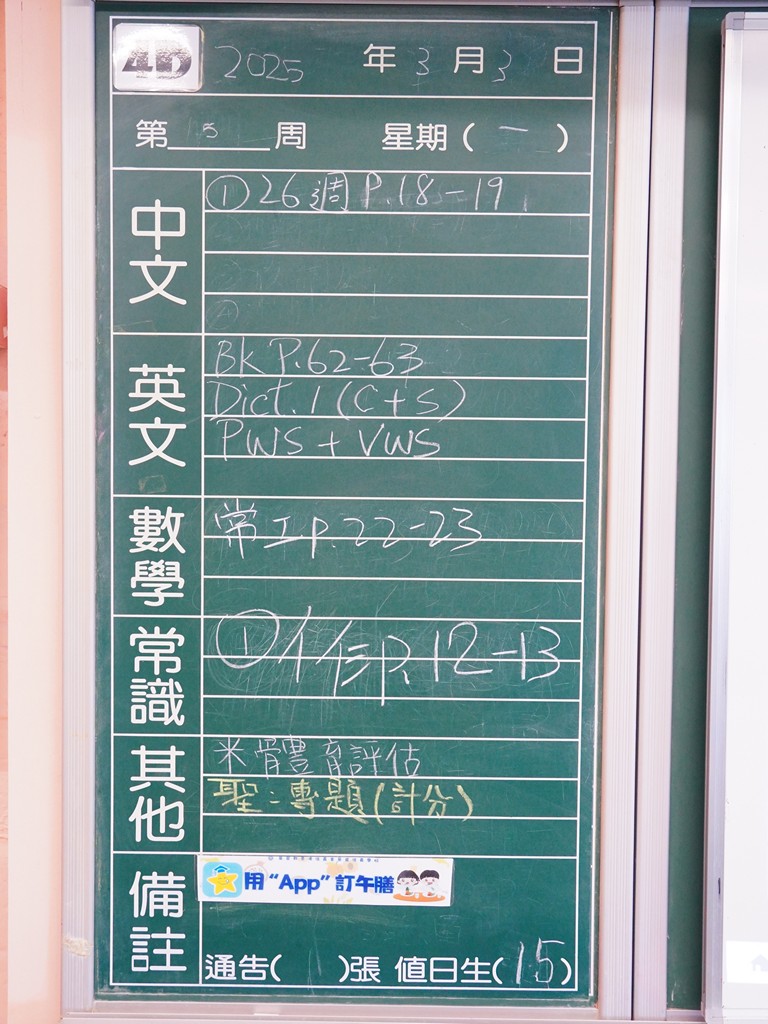 4D 2025 年 3 月 3 日
第 5 周 星期 ( 一 )
中文
① 26 週 P.18-19
英文
BK P.62-63
Dict. 1 (C+S)
PWS + VWS
數學
常工p.22-23
常識
① 作p.12-13
其他
米 體育評估
聖：專題(計分)
備註
用 “App” 訂午膳
通告( )張 值日生(15)